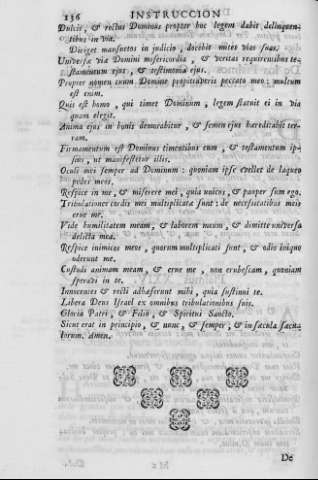 136 INSTRUCCION
Dulcis, & rectus Dominus propter hoc legem dabit delinquen-
tibus in via.
Diriget mansuetos in judicio, docebit mites vias suas.
Universæ viæ Domini misericordia, & veritas requirentibus te-
stamentum ejus, & testimonia ejus.
Propter nomen tuum Domine propitiaberis peccato meo: multum
est enim.
Quis est homo, qui timet Dominum, legem statuit ei in via
quam elegit.
Anima ejus in bonis demorabitur, & semen ejus hæreditabit ter-
ram.
Firmamentum est Dominus timentibus eum, & testamentum ip-
sius, ut manifestetur illis.
Oculi mei semper ad Dominum: quoniam ipse evellet de laqueo
pedes meos.
Respice in me, & miserere mei, quia unicus, & pauper sum ego.
Tribulationes cordis mei multiplicatæ sunt: de necessitatibus meis
erue me.
Vide humilitatem meam, & laborem meum, & dimitte universa
delicta mea.
Respice inimicos meos, quoniam multiplicati sunt, & odio iniquo
oderunt me.
Custodi animam meam, & erue me, non erubescam, quoniam
speravi in te.
Innocentes & recti adhæserunt mihi, quia sustinui te.
Libera Deus Israel ex omnibus tribulationibus suis.
Gloria Patri, & Filio, & Spiritui Sancto.
Sicut erat in principio, & nunc, & semper, & in sæcula sæcu-
lorum. Amen.
De